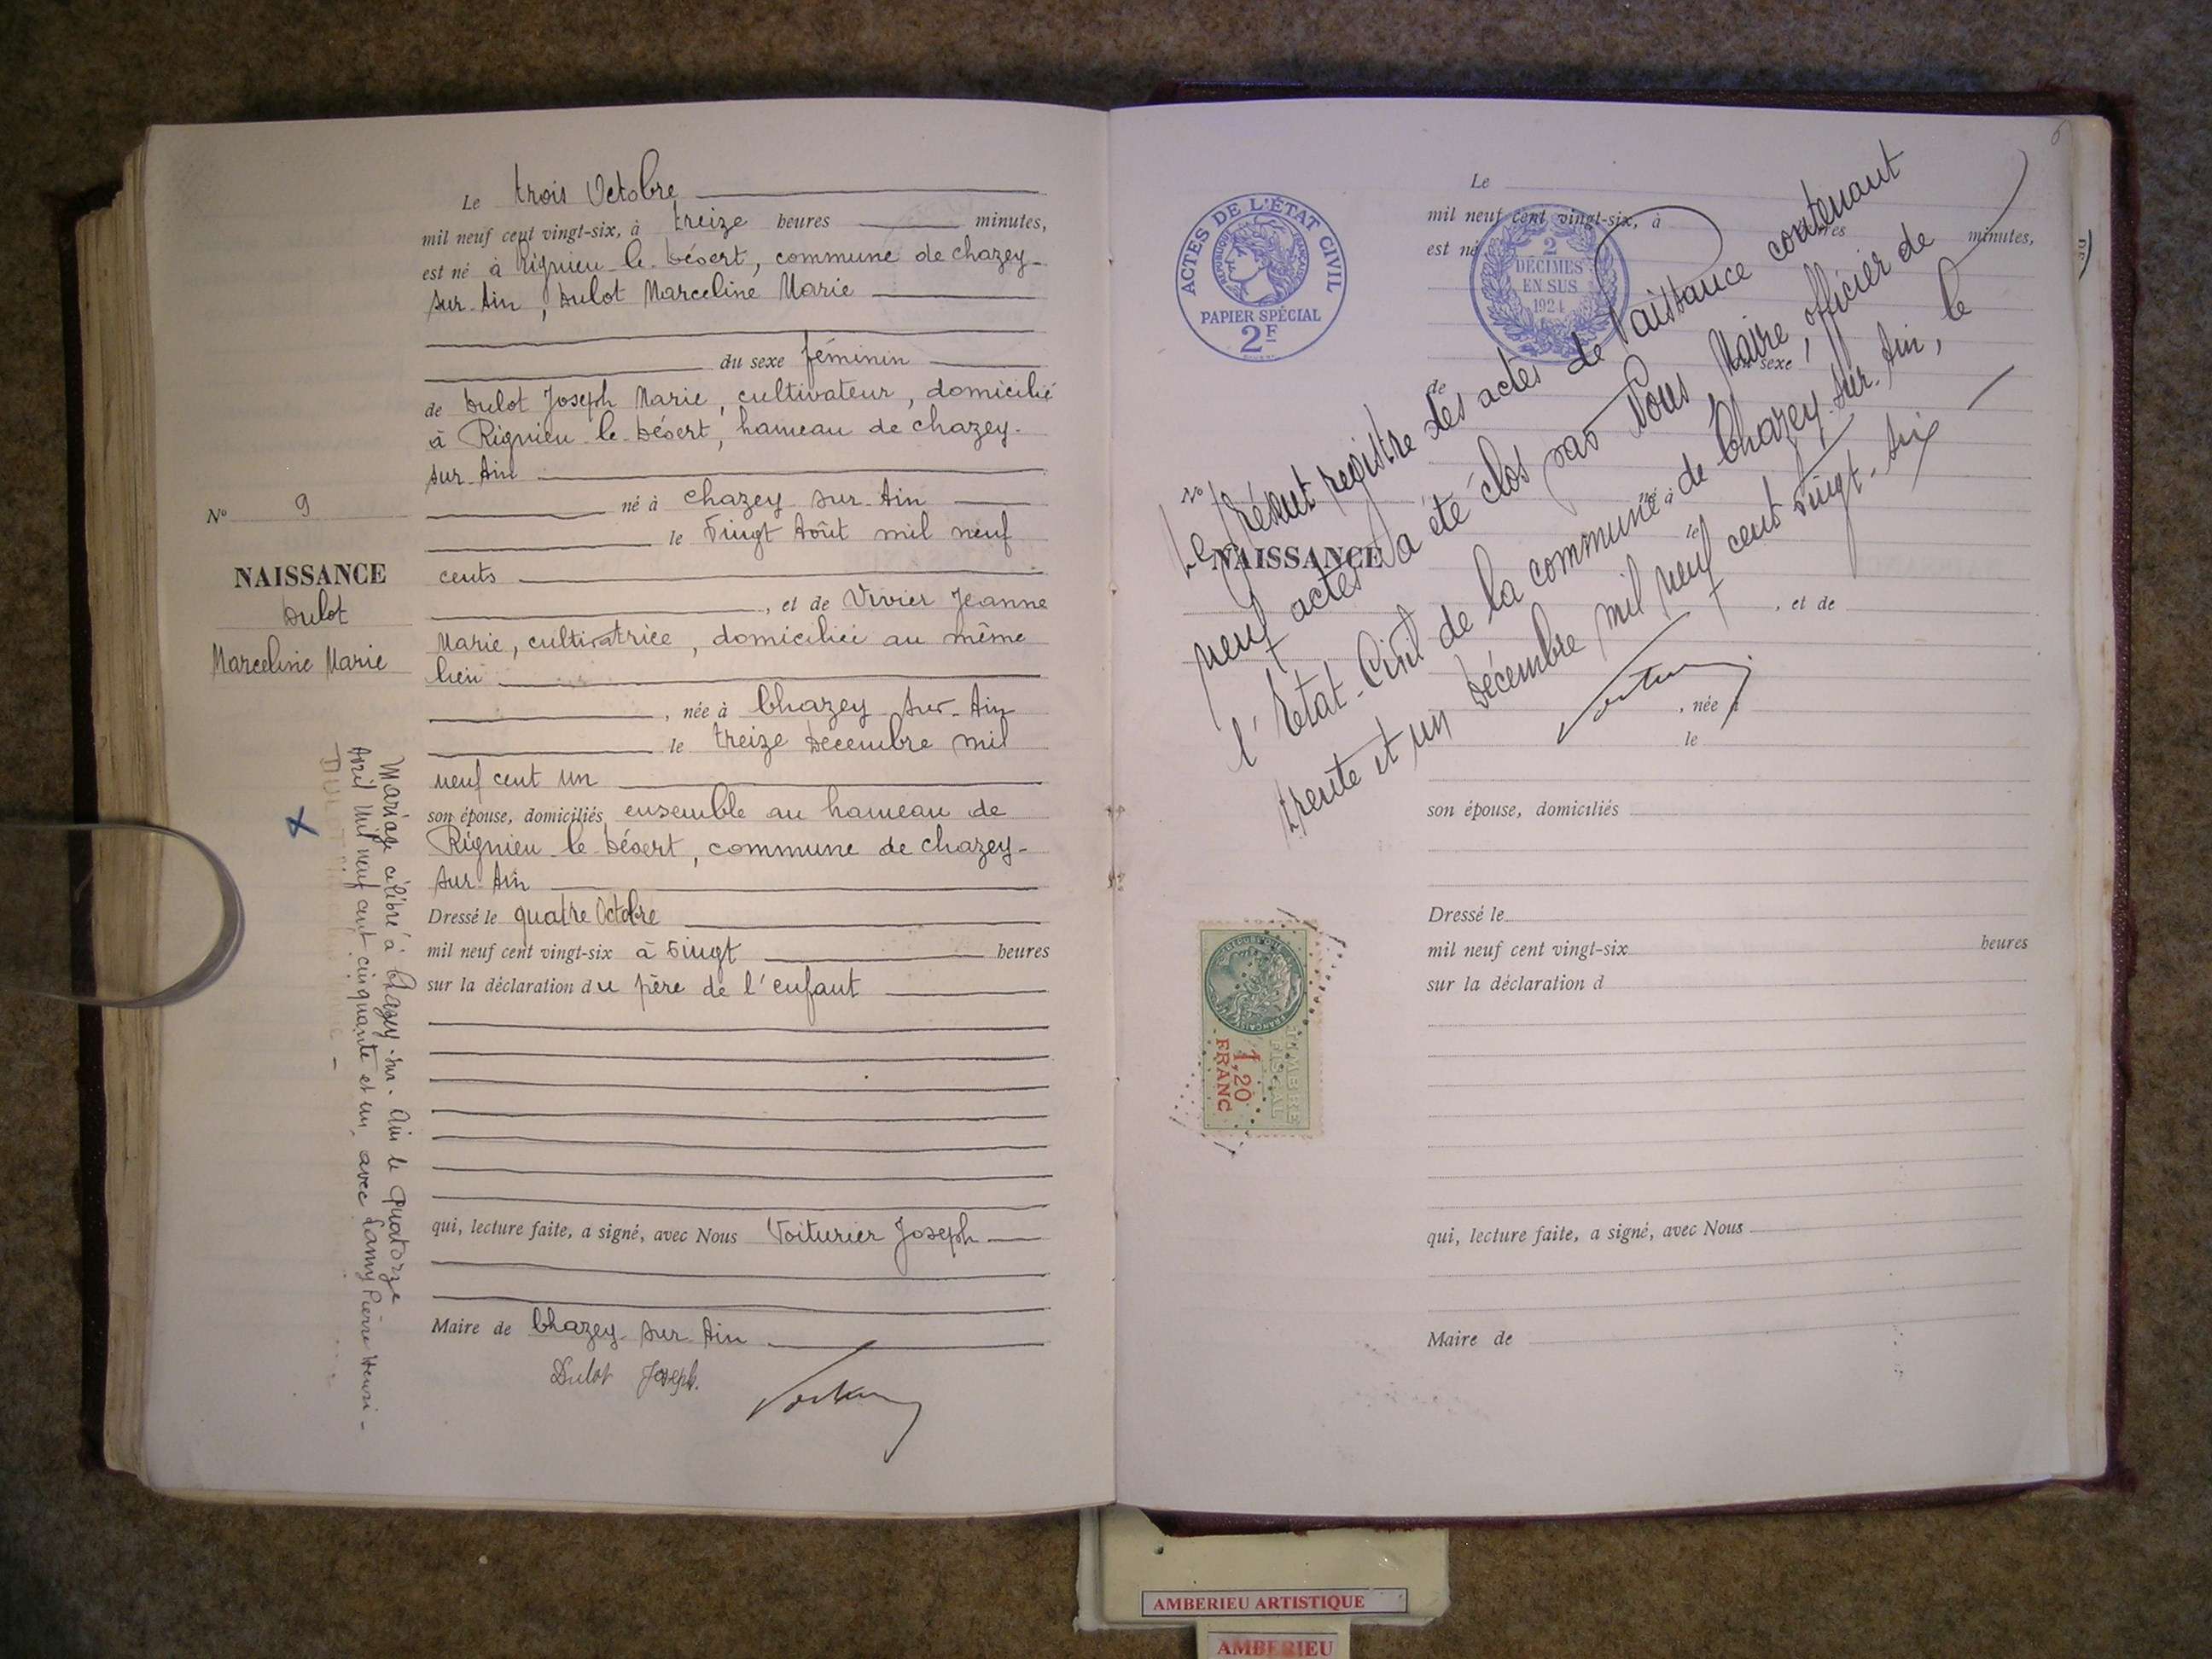 Le trois Octobre
mil neuf cent vingt-six, à treize heures minutes,
est né à Rignieu-le-Désert, commune de Chazey-
sur-Ain, Dulot Marceline Marie
du sexe féminin
de Dulot Joseph Marie, cultivateur, domicilié
à Rignieu-le-Désert, hameau de Chazey-
sur-Ain
né à Chazey sur-Ain
le Vingt Août mil neuf
cents
, et de Vivier Jeanne
Marie, cultivatrice, domiciliée au même
lieu
, née à Chazey-sur-Ain
le treize Décembre mil
neuf cent un
son épouse, domiciliés ensemble au hameau de
Rignieu-le-Désert, commune de Chazey-
sur-Ain
Dressé le quatre Octobre
mil neuf cent vingt-six à Vingt heures
sur la déclaration du père de l'enfant
qui, lecture faite, a signé, avec Nous Voiturier Joseph
Maire de Chazey-sur-Ain
Dulot Joseph.
N° 9
NAISSANCE
Dulot
Marceline Marie
Mariage célébré à Chazey-sur-Ain le Quatorze
Avril Mil neuf cent cinquante et un, avec Lamy Pierre Henri -
ACTES DE L'ÉTAT CIVIL
RÉPUBLIQUE FRANÇAISE
PAPIER SPÉCIAL
2F
2
DÉCIMES
EN SUS
1924
Le
mil neuf cent vingt-six, à heures minutes,
est né
sexe
de
né à
le
N°
NAISSANCE
, et de
, née à
le
son épouse, domiciliés
Dressé le
mil neuf cent vingt-six heures
sur la déclaration d
qui, lecture faite, a signé, avec Nous
Maire de
Le Présent registre des actes de Naissance contenant
neuf actes a été clos par Nous Maire, officier de
l'Etat-Civil de la commune de Chazey-sur-Ain, le
trente et un Décembre mil neuf cent vingt-six
RÉPUBLIQUE FRANÇAISE
TIMBRE
FISCAL
1,20
FRANC
AMBERIEU ARTISTIQUE
AMBERIEU